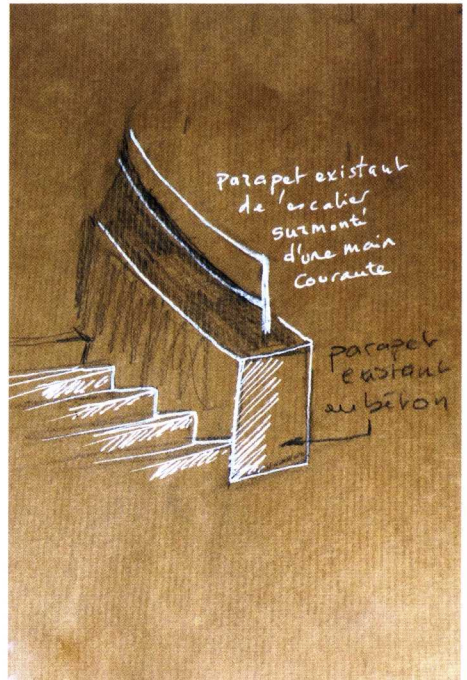 Parapet existant
de l'escalier
surmonté
d'une main
courante
parapet
existant
en béton